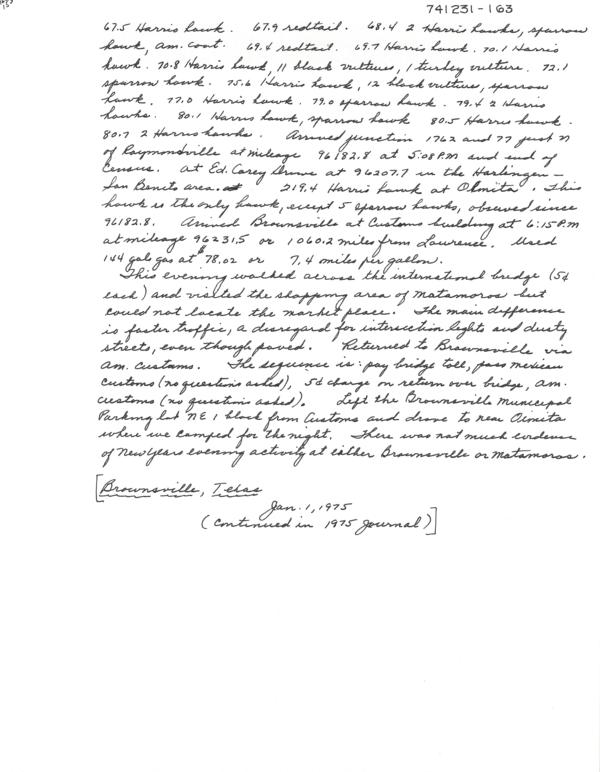 741231-163
67.5 Harris hawk. 67.9 redtail. 68.4 2 Harris hawks, sparrow
hawk, am. coot. 69.4 redtail. 69.7 Harris hawk. 70.1 Harris
hawk. 70.8 Harris hawk, 11 black vultures, 1 turkey vulture. 72.1
sparrow hawk. 75.6 Harris hawk, 12 black vultures, sparrow
hawk. 77.0 Harris hawk. 79.0 sparrow hawk. 79.4 2 Harris
hawks. 80.1 Harris hawk, sparrow hawk 80.5 Harris hawk.
80.7 2 Harris hawks. Arrived junction 1762 and 77 just N
of Raymondville at mileage 96182.8 at 5:08 P.M and end of
Census. at Ed. Carey Drive at 96207.7 in the Harlingen-
San Benito area. 219.4 Harris hawk at Olmita. This
hawk is the only hawk, except 5 sparrow hawks, observed since
96182.8. Arrived Brownsville at Customs building at 6:15 P.M
at mileage 96231.5 or 1060.2 miles from Lawrence. Used
144 gals gas at $78.02 or 7.4 miles per gallon.
This evening walked across the international bridge (5¢
each) and visited the shopping area of Matamoros but
could not locate the market place. The main difference
is faster traffic, a disregard for intersection lights and dusty
streets, even though paved. Returned to Brownsville via
am. Customs. The sequence is: pay bridge toll, pass mexican
customs (no questions asked), 5¢ charge on return over bridge, am.
customs (no questions asked). Left the Brownsville Municipal
Parking lot NE 1 block from Customs and drove to near Olmita
where we camped for the night. There was not much evidence
of New Years evening activity at either Brownsville or Matamoros.
[Brownsville, Texas
Jan. 1, 1975
(Continued in 1975 Journal)]